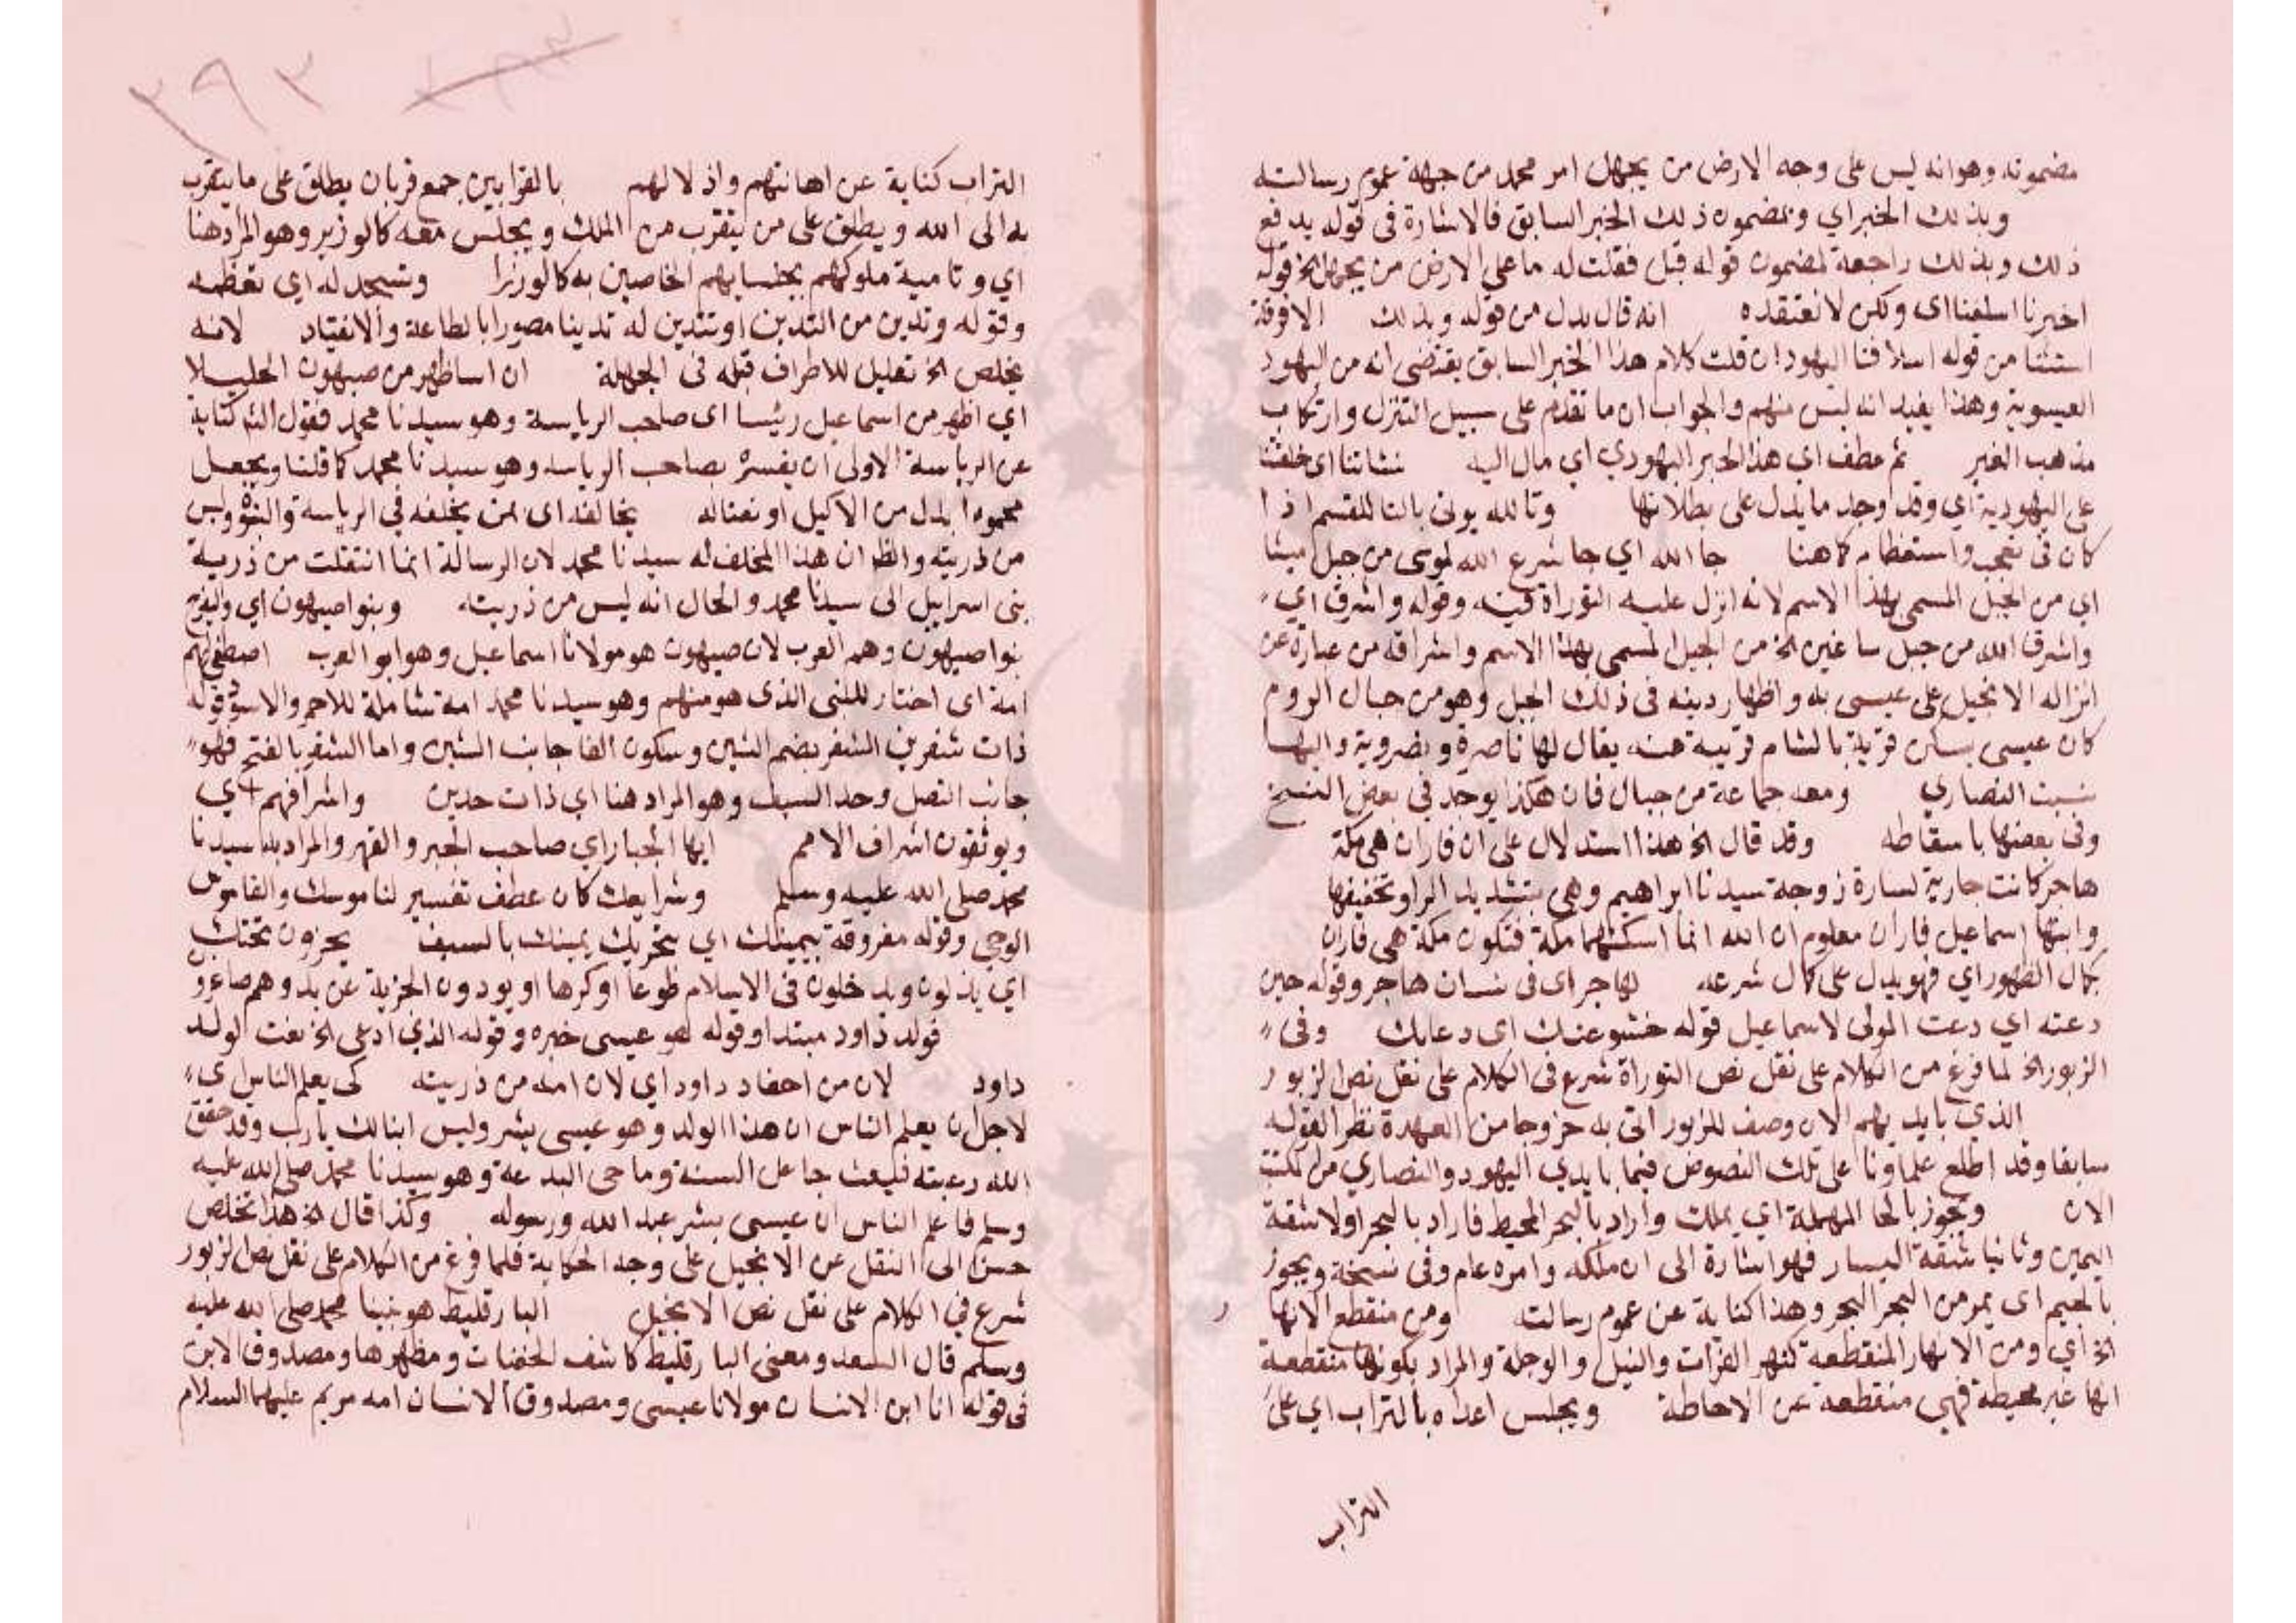 مضمونه وهوانه ليس على وجه الارض من يجهل امر محمد من جهة عموم رسالته
وبذلك الخبر اي وبمضمون ذلك الخبر السابق فالاشارة فى قوله يدفع
ذلك وبذلك راجعة لمضمون قوله قبل فقلت له ما على الارض من يجهل الخ قوله
اخبرنا اسلفنا اى ولكن لا نعتقده انه قال بدل من قوله وبذلك الا فرقة
استثنا من قوله اسلافنا اليهود ان قلت كلام هذا الخبر السابق يقتضى انه من اليهود
العيسوية وهذا يفيد انه ليس منهم والجواب ان ما تقدم على سبيل التنزل وارتكاب
مذهب الغير ثم عطف اي هذا الحبر اليهودي اي مال اليه نشاتنا اى خلقتنا
على اليهودية اي وقد وجد ما يدل على بطلانها وتالله يوتى بالتا للقسم اذا
كان فى تعجب واستعظام كما هنا جا الله اي جا شرع الله لموسى من جبل سينا
اي من الجبل المسمى بهذا الاسم لانه انزل عليه التوراة فيه وقوله واشرق اي
واشرق الله من جبل ساغين الخ من الجبل المسمى بهذا الاسم واشراقه من عبارة عن
انزاله الانجيل على عيسى به واظهار دينه فى ذلك الجبل وهو من جبال الروم
كان عيسى يسكن قرية بالشام قريبة منه يقال لها ناصرة ونضروية واليها
نسبت النصاري ومعه جماعة من جبال فان هكذا يوجد في بعض النسخ
وفى بعضها باسقاطه وقد قال الخ هذا استدلال على ان فاران هي مكة
هاجر كانت جارية لسارة زوجة سيدنا ابراهيم وهي بتشديد الرا وتخفيفها
وابنها اسماعيل فاران معلوم ان الله انما اسكنهما مكة فتكون مكة هى فاران
كمال الظهور اي فهو يدل على كمال شرعه لهاجر اى فى شان هاجر وقوله حين
دعته اي دعت المولى لاسماعيل قوله خشوعك اى دعابك وفى
الزبور الخ لما فرغ من الكلام على نقل نص التوراة شرع فى الكلام على نقل نص الزبور
الذي بايديهم الان وصف للزبور اتى به خروجا من العهدة نظرا لقوله
سابقا وقد اطلع علماونا على تلك النصوص فيما بايدي اليهود والنصاري من الكتب
الان ويجوز بالحا المهملة اي يملك واراد بالبحر المحيط فاراد بالبحر اولا شقة
اليمين وثانيا شقة اليسار فهو اشارة الى ان ملكه وامره عام وفى نسخة ويجوز
بالجيم اى يمر من البحر البحر وهذا كناية عن عموم رسالته ومن منقطع الانها ر
الخ اي ومن الانهار المنقطعة كنهر الفرات والنيل والوجلة والمراد بكونها منقطعة
انها غير محيطة فهي منقطعة عن الاحاطة ويجلس اعداه بالتراب اي على
التراب
٢٩٢
التراب كناية عن اهانتهم واذلالهم بالقرابين جمع قربان يطلق على ما يتقرب
به الى الله ويطلق على من يتقرب من الملك ويجلس معه كالوزير وهو المراد هنا
اي وتاميه ملوكهم بجلسايهم الخاصين به كالوزرا وتسجد له اي تعظمه
وقوله وتدين من التدين او تتدين له تدينا مصورا بالطاعة والانقياد لانه
يخلص الخ تعليل للاطراف قبله فى الجملة ان اساظهر من صيهون اكليلا
اي اظهر من اسماعيل رئيسا اى صاحب الرياسة وهو سيدنا محمد فقول الثم كناية
عن الرياسة الاولى ان يفسره بصاحب الرياسه وهو سيدنا محمد كما قلنا ويجعل
محمودا بدل من الاكليل او نعتاله يخالفه اى من يخلفه في الرياسة والنبوة وليس
من ذريته والظ ان هذا المخلف له سيدنا محمد لان الرسالة انما انتقلت من ذرية
بنى اسرايل الى سيدنا محمد والحال انه ليس من ذريته وبنوا صيهون اي وليفرح
بنوا صيهون وهم العرب لان صيهون هو مولانا اسماعيل وهو ابو العرب اصطفى لهم
امة اى اختار للنبى الذى هو منهم وهو سيدنا محمد امة شاملة للاحمر والاسود قوله
ذات شفرين الشفر بضم الشين وسكون الفا جانب الشين واما الشفر بالفتح فهو
جانب النصل وحد السيف وهو المراد هنا اي ذات حدين واشرافهم اي
ويوثقون اشراف الامم ايها الجبار اي صاحب الجبر والقهر والمراد به سيدنا
محمد صلى الله عليه وسلم وشرايعك كان عطف تفسير لناموسك والقاموس
الوحي وقوله مفروقة بيمينك اي بتحريك يمينك بالسيف يخرون تحتك
اي يذلون ويدخلون فى الاسلام طوعا او كرها او يودون الجزية عن يد وهم صاغرو
قوله داود مبتدا وقوله هو عيسى خبره وقوله الذي ادعى الخ نعت لوليد
داود لان من احفاد داود اي لان امه من ذريته كى يعلم الناس اى
لاجل ان يعلم الناس ان هذا الولد وهو عيسى بشر وليس ابنا لك يا رب وقد حقق
الله رغبته فبعث جاعل السنة وماحى البدعة وهو سيدنا محمد صلى الله عليه
وسلم فاعلم الناس ان عيسى بشر عبد الله ورسوله وكذا قال الخ هذا تخلص
حسن الى النقل عن الانجيل على وجه الحكاية فلما فرغ من الكلام على نقل نص الزبور
شرع في الكلام على نقل نص الانجيل البارقليط هو نبينا محمد صلى الله عليه
وسلم قال السعد ومعنى البارقليط كاشف الخفيات ومظهرها ومصدوق الابن
فى قوله انا ابن الانسان مولانا عيسى ومصدوق الانسان امه مريم عليهما السلام